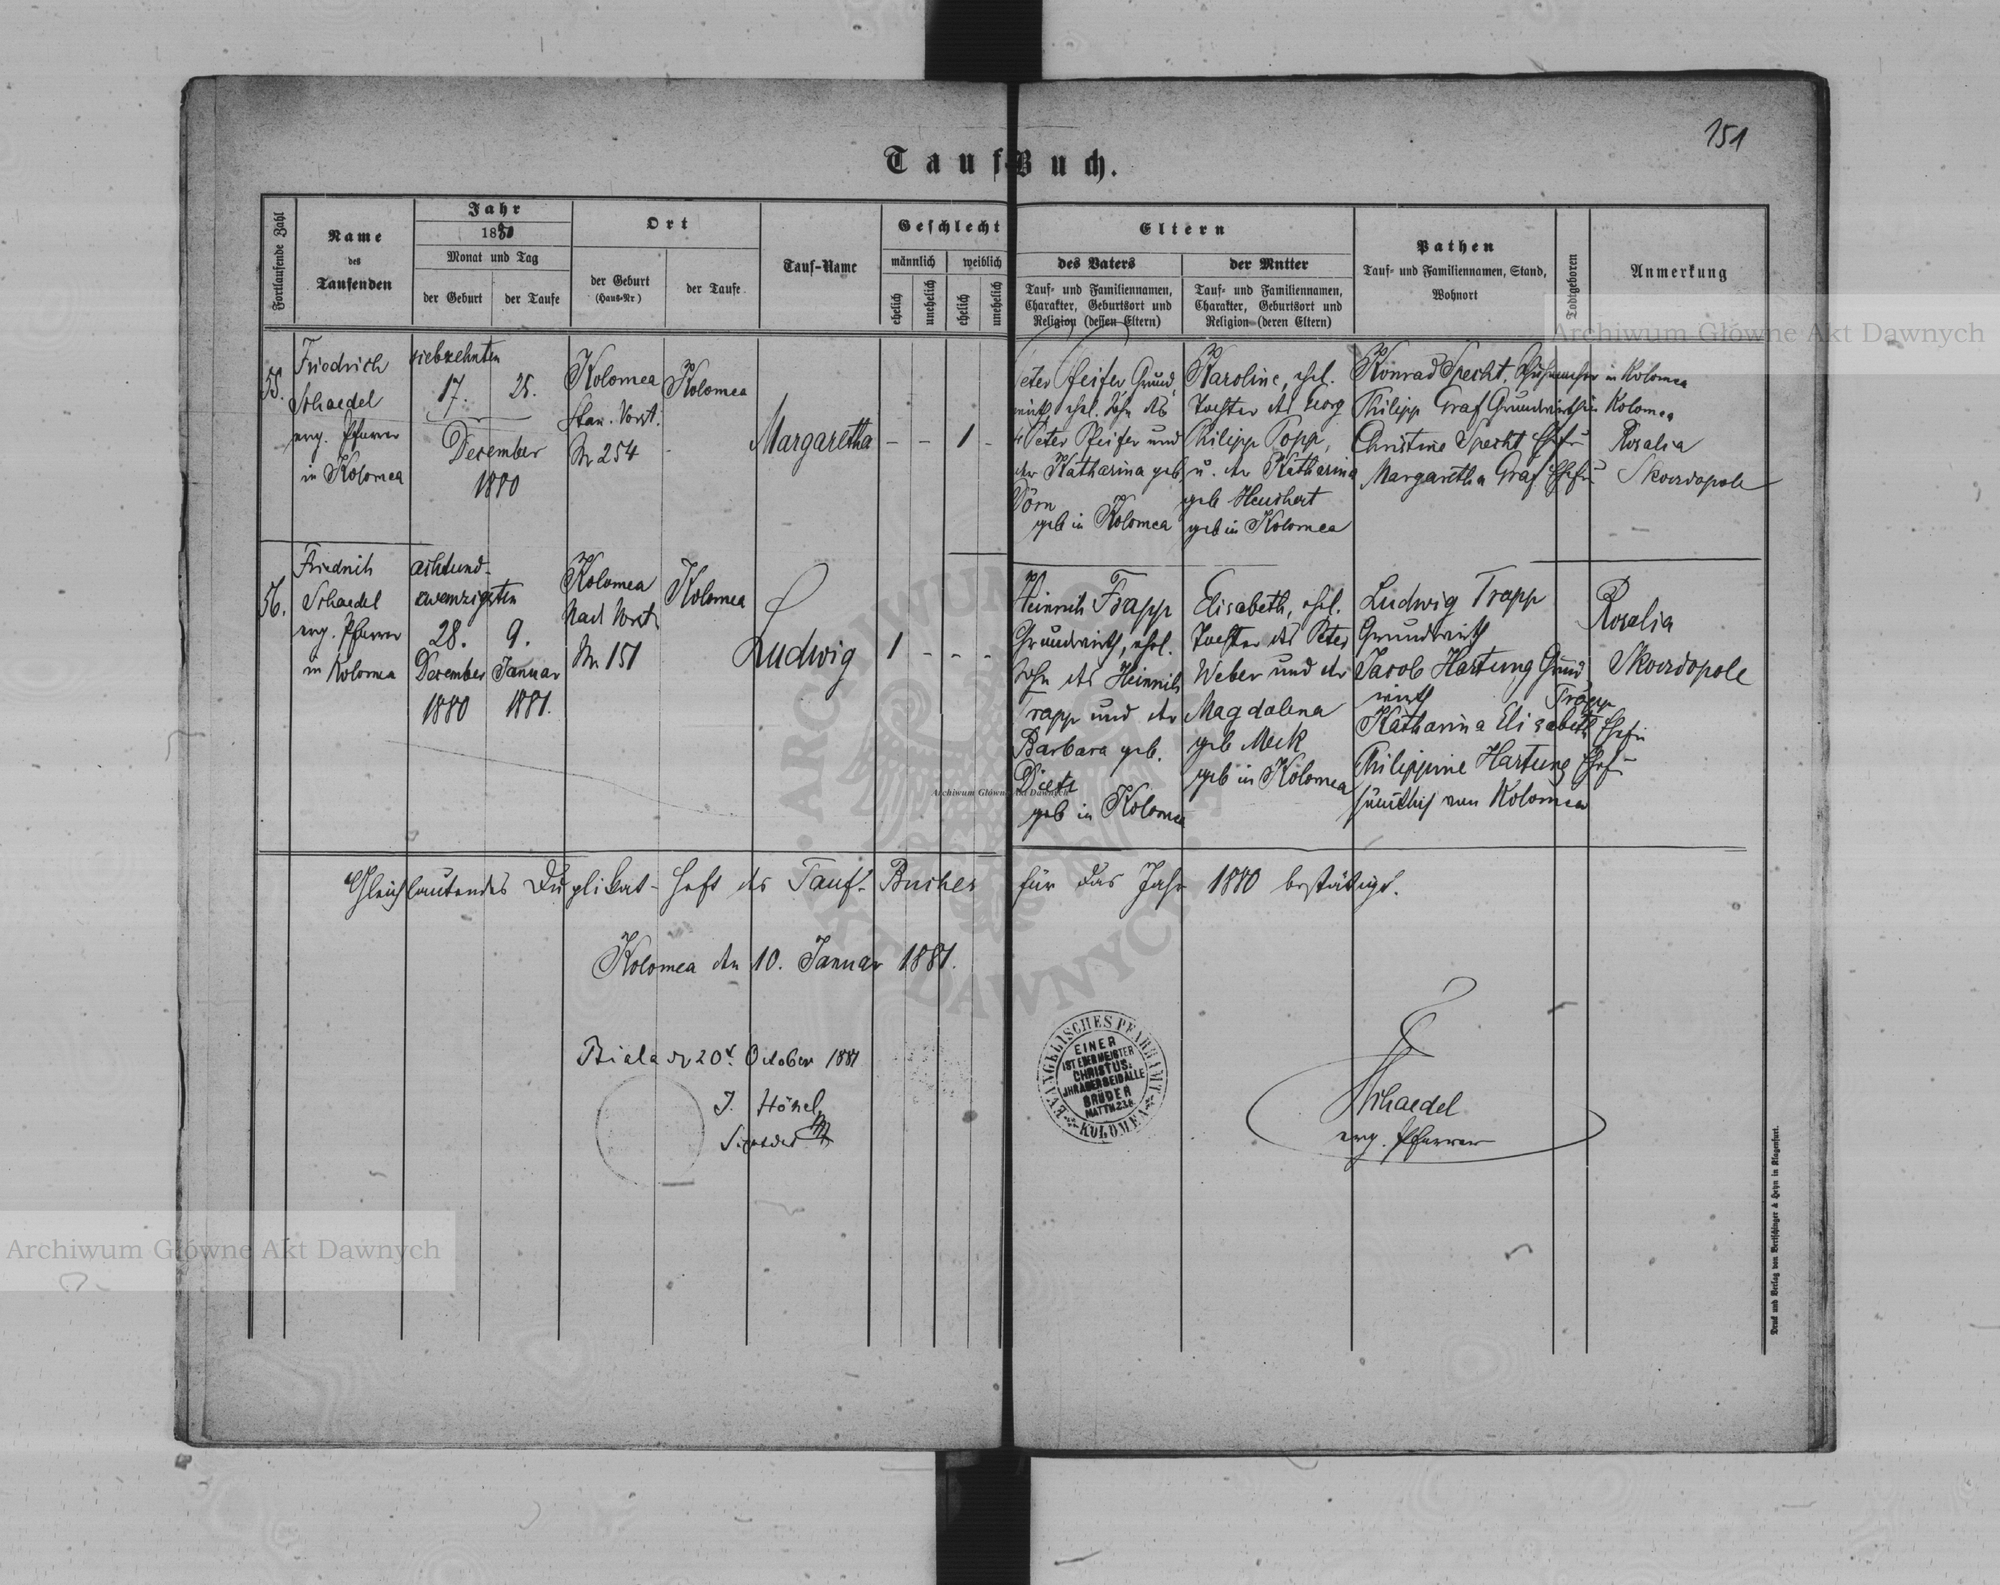 151
Tauf-Buch.
Fortlaufende Zahl
Name
des
Taufenden
Jahr
1880
Monat und Tag
der Geburt
der Taufe
Ort
der Geburt
(Haus-Nr.)
der Taufe
Tauf-Name
Geschlecht
männlich
weiblich
ehelich
unehelich
ehelich
unehelich
Eltern
des Vaters
Tauf- und Familiennamen,
Charakter, Geburtsort und
Religion (dessen Eltern)
der Mutter
Tauf- und Familiennamen,
Charakter, Geburtsort und
Religion (deren Eltern)
Pathen
Tauf- und Familiennamen, Stand,
Wohnort
Todtgeboren
Anmerkung
55.
Friedrich
Schaedel
evg. Pfarrer
in Kolomea
siebzehnten
17.
25.
December
1880
Kolomea
Stan. Vorst.
Nr 254
Kolomea
Margaretha
- - 1 -
Peter Pfeifer Grund
wirth, ehl. Sohn des
Peter Pfeifer und
der Katharina geb
Dörn
geb in Kolomea
Karoline, ehl.
Tochter des Georg
Philipp Popp,
u. der Katharina
geb Heuchert
geb in Kolomea
Konrad Specht, Schuhmacher in Kolomea
Philipp Graf Grundwirth in Kolomea
Christine Specht Ehefr
Margaretha Graf Ehefr
Rosalia
Skowdopole
56.
Friedrich
Schaedel
evg. Pfarrer
in Kolomea
achtund-
zwanzigsten
28.
December
1880
9.
Januar
1881.
Kolomea
Nad Vorst
Nr 151
Kolomea
Ludwig
1 - - -
Heinrich Trapp
Grundwirth, ehl.
Sohn des Heinrich
Trapp und der
Barbara geb.
Dietz
geb in Kolomea
Elisabeth, ehl.
Tochter des Peter
Weber und der
Magdalena
geb Meck
geb in Kolomea
Ludwig Trapp
Grundwirth
Jacob Hartung Grund
wirth
Trapp
Katharina Elisabeth Ehefr
Philippine Hartung Ehefr
sämtlich von Kolomea
Rosalia
Skowdopole
Gleichlautendes Duplikat-Heft des Tauf-Buches für das Jahr 1880 bestätigt.
Kolomea den 10. Januar 1881.
Biala den 20t. October 1881
J. Hönel
EVANGELISCHES PFARRAMT
KOLOMEA
EINER
IST EUER MEISTER
CHRISTUS:
IHR ABER SEID ALLE
BRÜDER
MATTH. 23,8
FSchaedel
evg. Pfarrer
Druck und Verlag von Bertschinger & Heyn in Klagenfurt.
Archiwum Główne Akt Dawnych
Archiwum Główne Akt Dawnych
Archiwum Główne Akt Dawnych
ARCHIWUM
AKT DAWNYCH